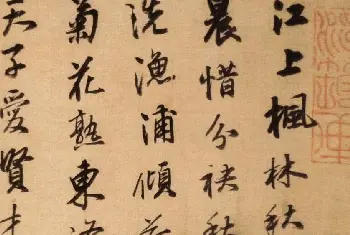 江上楓林秋
晨惜分袂秋
洗漁浦傾
菊花熟東
天子愛賢才